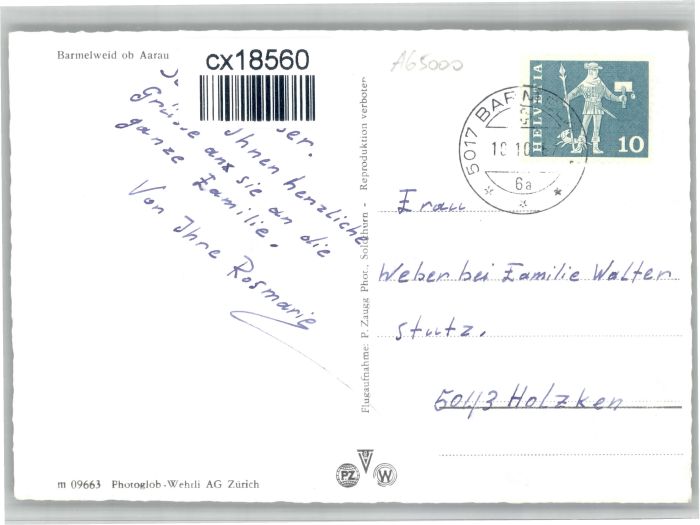 Barmelweid ob Aarau
cx18560
A65000
Ihnen herzliche
Grüsse aus sie an die
ganze Familie.
Von Ihre Rosmarie
Flugaufnahme: P. Zaugg Phot., Solothurn - Reproduktion verboten
HELVETIA
10
5017 BARM
6a
Frau
Weber bei Familie Walter
Stutz.
5043 Holzken
m 09663 Photoglob-Wehrli AG Zürich
PZ
W